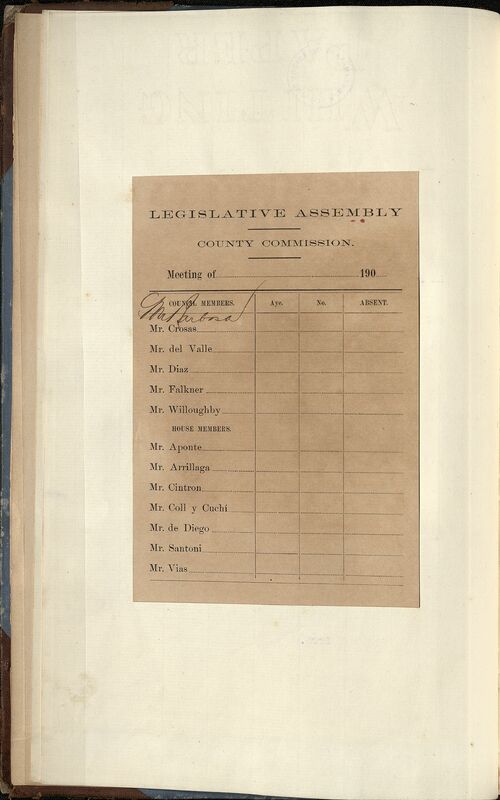 LEGISLATIVE ASSEMBLY
COUNTY COMMISSION.
Meeting of 190
COUNCIL MEMBERS. Aye. No. ABSENT.
Mr Barbosa
Mr. Crosas
Mr. del Valle
Mr. Diaz
Mr. Falkner
Mr. Willoughby
HOUSE MEMBERS.
Mr. Aponte
Mr. Arrillaga
Mr. Cintron
Mr. Coll y Cuchí
Mr. de Diego
Mr. Santoni
Mr. Vias